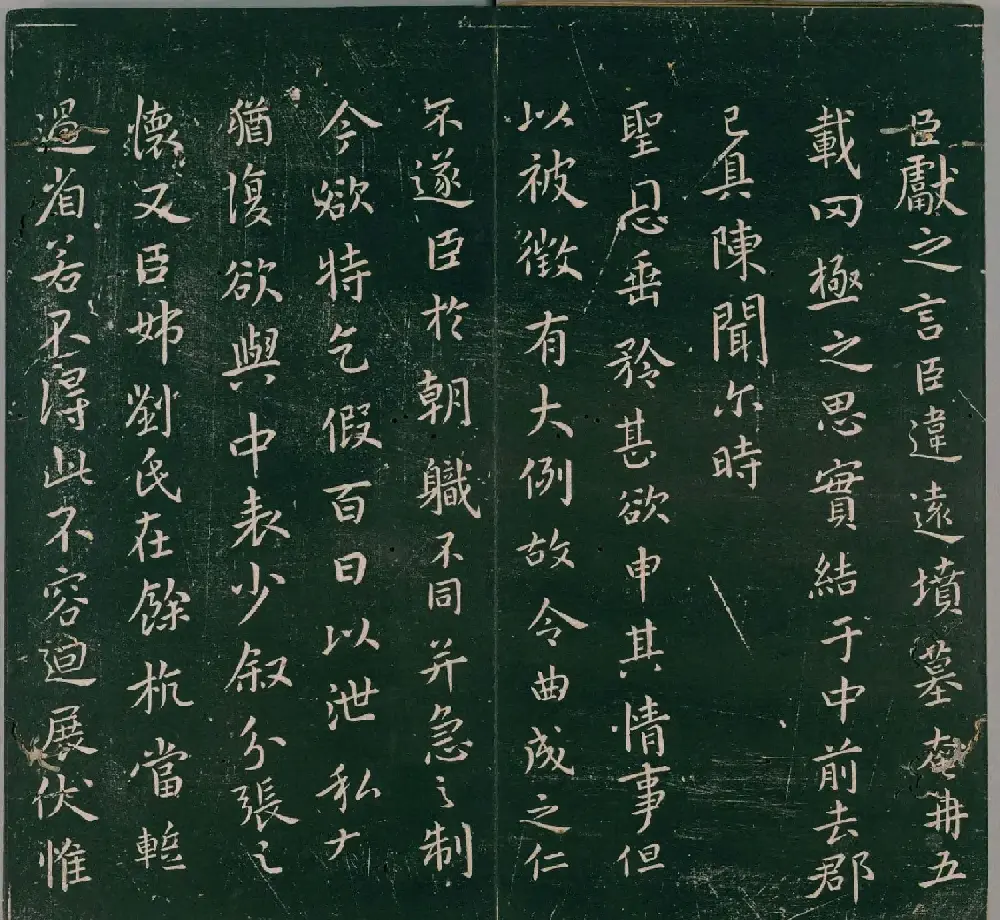 臣獻之言臣違遠墳墓奄冉五
載罔極之思實結于中前去郡
已具陳聞尓時
聖恩垂矜甚欲申其情事但
以被徵有大例故令曲成之仁
不遂臣於朝職不同并急之制
今欲特乞假百日以泄私寸
猶復欲與中表少叙分張之
懷又臣姊劉氏在餘杭當暫
過省若不得此不容迴展伏惟